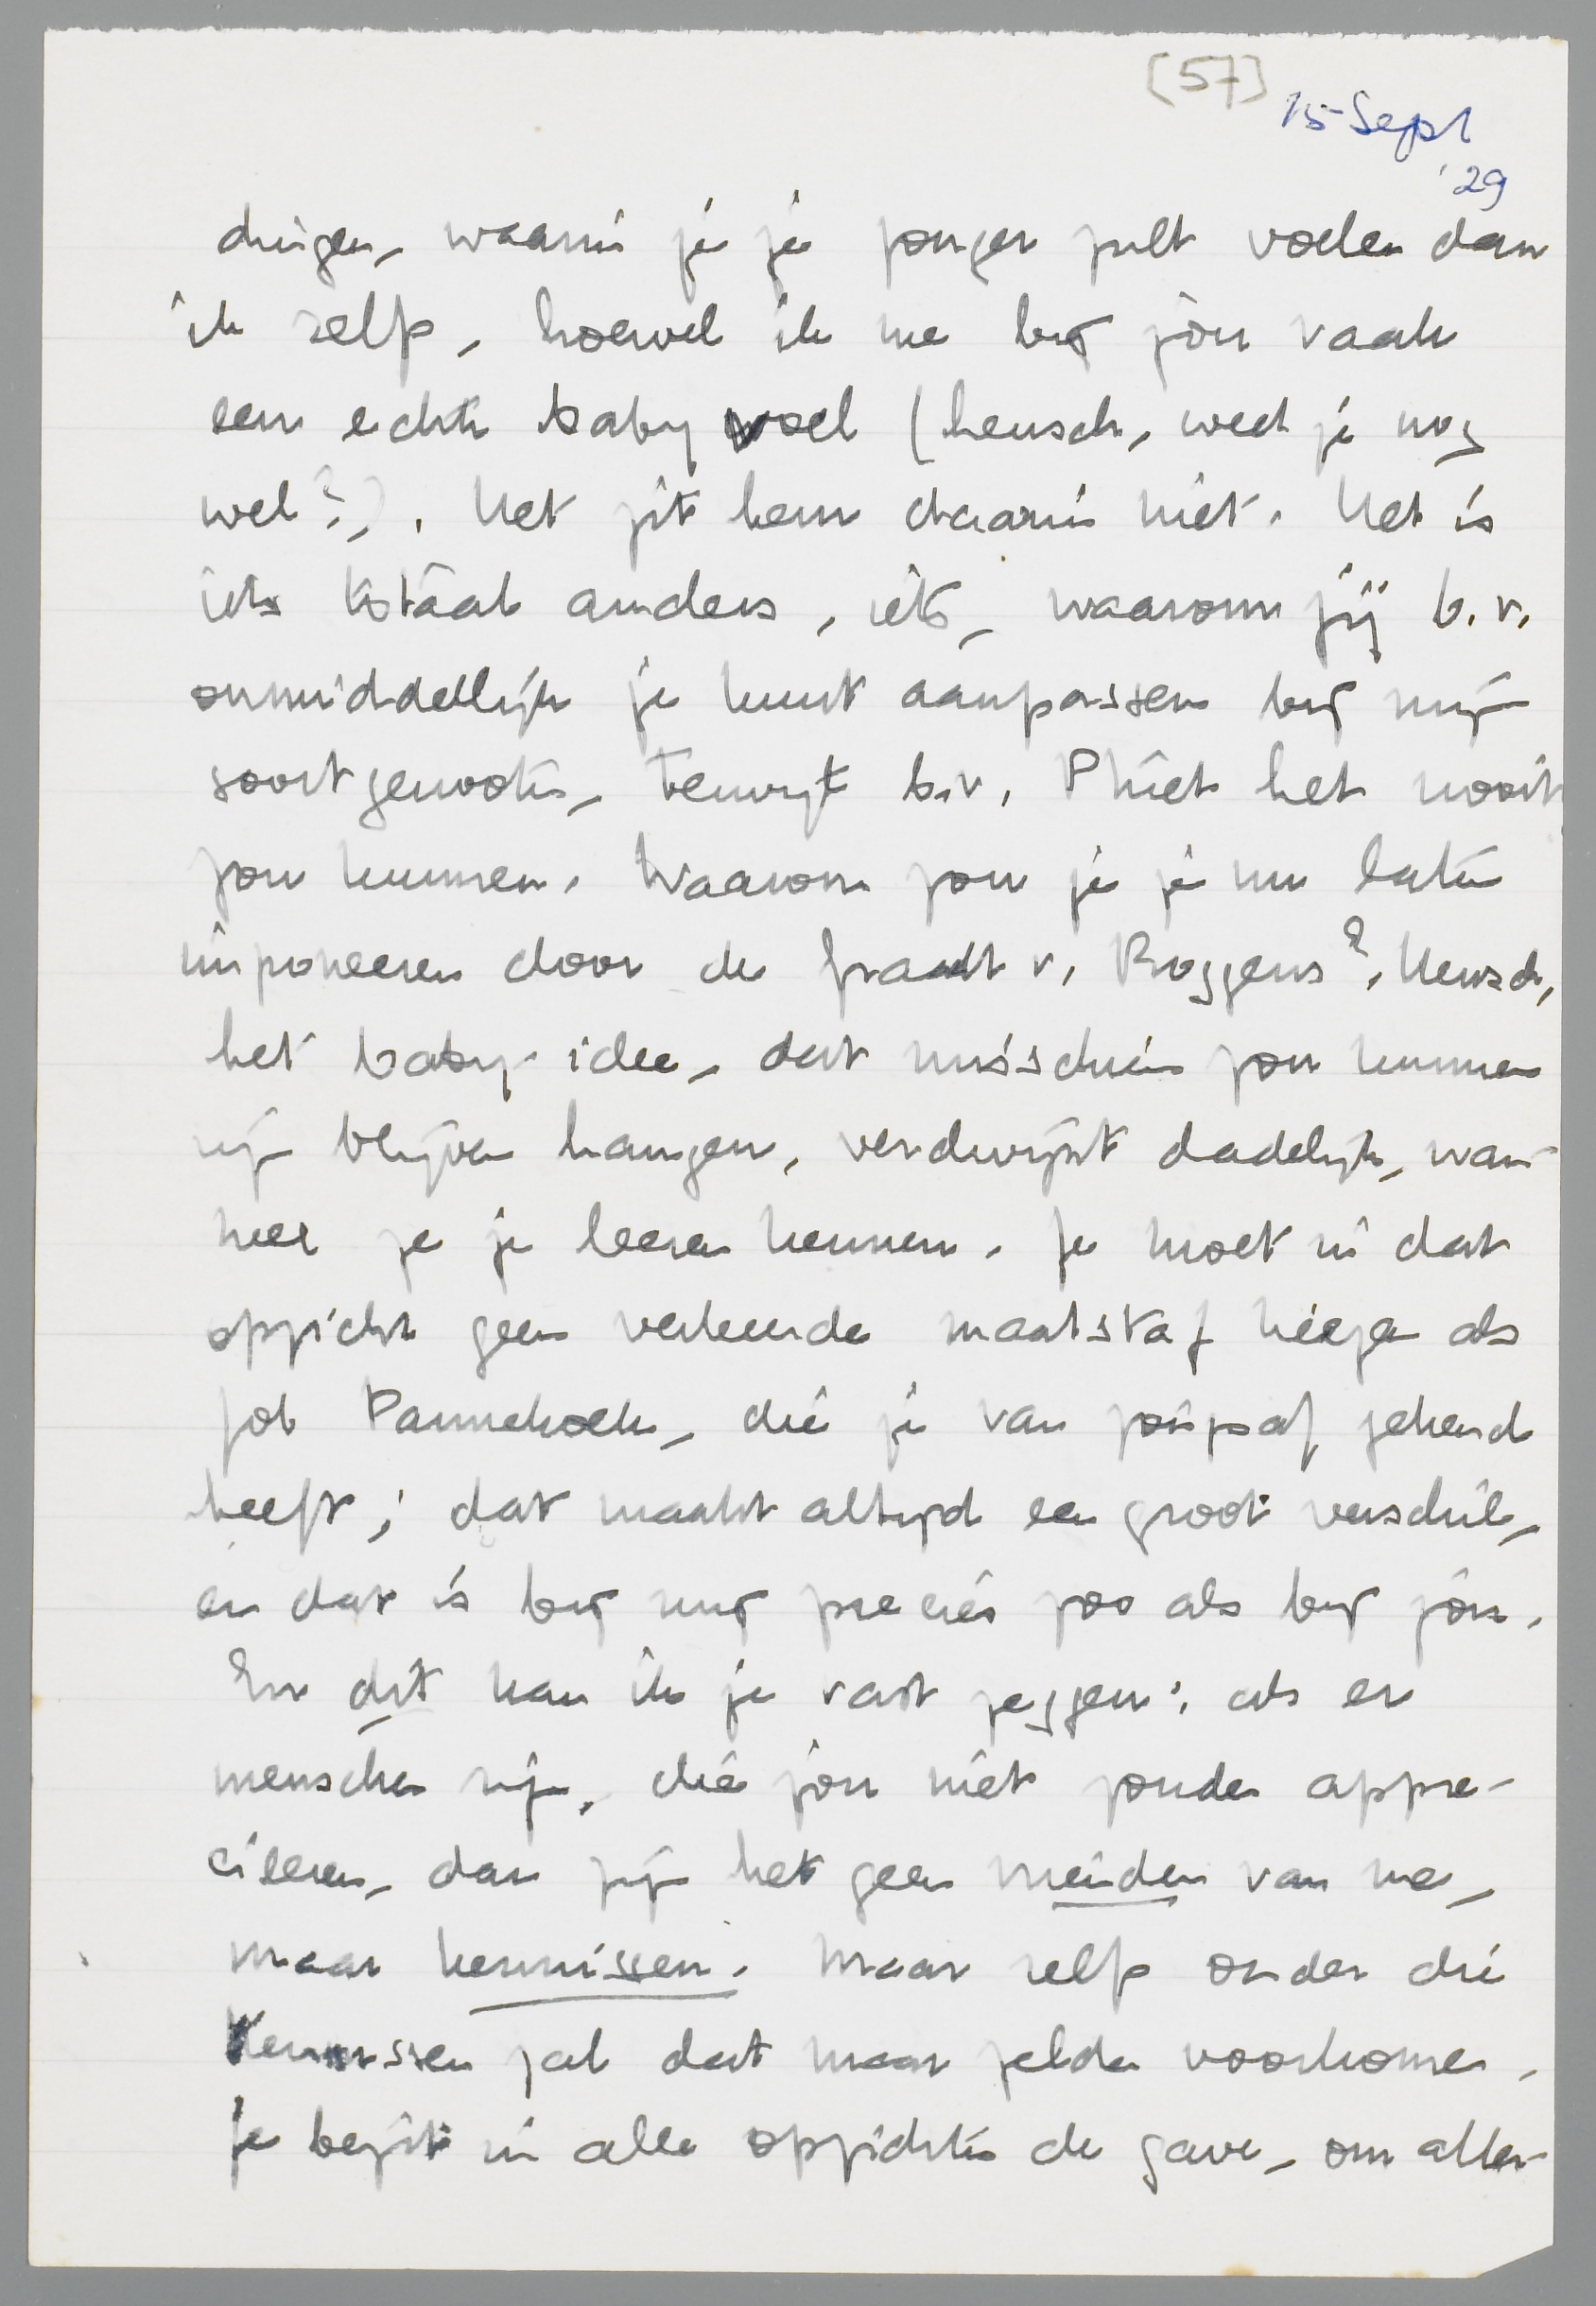 [57]
15 Sept
'29
dingen, waarin je je jonger zult voelen dan
ik zelf, hoewel ik me bij jóu vaak
een echte baby voel (heusch, weet je nog
wel?). Het zit hem daarin niet. Het is
iets totáál anders, iets, waarom jij b.v.
onmiddellijk je kunt aanpassen bij mijn
soortgenooten, terwijl b.v. Phiet het nooit
zou kunnen. Waarom zou je je nu laten
imponeeren door de fraalt v. Roggens? Heusch,
het baby-idee, dat misschien zou kunnen
zijn blijven hangen, verdwijnt dadelijk, wan-
neer ze je leeren kennen. Je moet in dat
opzicht geen verkeerde maatstaf krijgen als
Job Pannekoek, die je van jongsaf gekend
heeft; dat maakt altijd een groot verschil,
en dat is bij mij precies zoo als bij jóu.
En dit kan ik je vast zeggen: als er
menschen zijn, die jóu niet zouden appre-
cieeren, dan zijn het geen vrienden van me,
maar kennissen. Maar zelfs onder die
kennissen zal dat maar zelden voorkomen.
Je bezit in alle opzichten de gave, om aller-